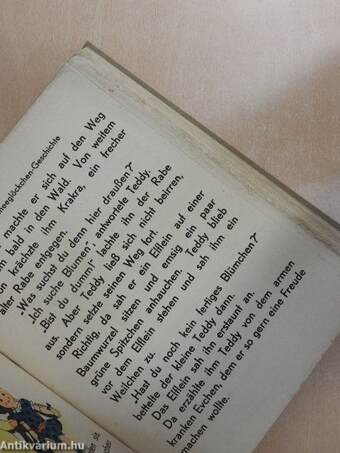 neeglöckchen-Geschichte
machte er sich auf den Weg
bald in den Wald. Von weitem
krächzte ihm Krakra, ein frecher
alter Rabe entgegen.
„Was suchst du denn hier draußen?"
„Ich suche Blumen", antwortete Teddy.
„Bist du dumm!" lachte ihn der Rabe
aus. Aber Teddy ließ sich nicht beirren,
sondern setzte seinen Weg fort.
Richtig, da sah er ein Elflein auf einer
Baumwurzel sitzen und emsig ein paar
grüne Spitzchen anhauchen. Teddy blieb
vor dem Elflein stehen und sah ihm ein
Weilchen zu.
„Hast du noch kein fertiges Blümchen?"
bettelte der kleine Teddy dann.
Das Elflein sah ihn erstaunt an.
Da erzählte ihm Teddy von dem armen
kranken Evchen, dem er so gern eine Freude
machen wollte.
antikvarium.hu